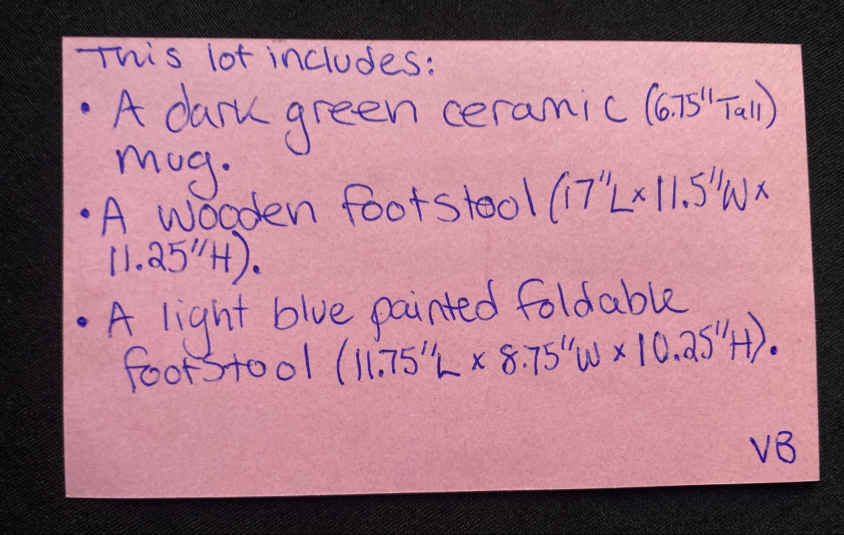 This lot includes:
• A dark green ceramic (6.75" Tall)
mug.
• A wooden footstool (17"L x 11.5"W x
11.25"H).
• A light blue painted foldable
footstool (11.75"L x 8.75"W x 10.25"H).
VB